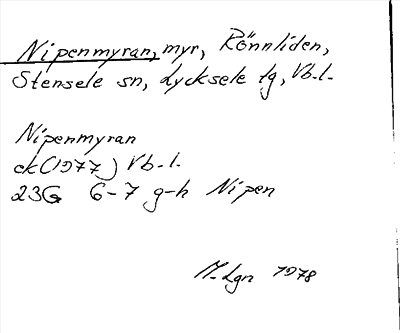 Nipenmyran, myr, Rönnliden,
Stensele sn, Lycksele lg, Vb.l.
Nipenmyran
ek (1977) Vb.l.
23G 6-7 g-h Nipen
M. Lgn 1978